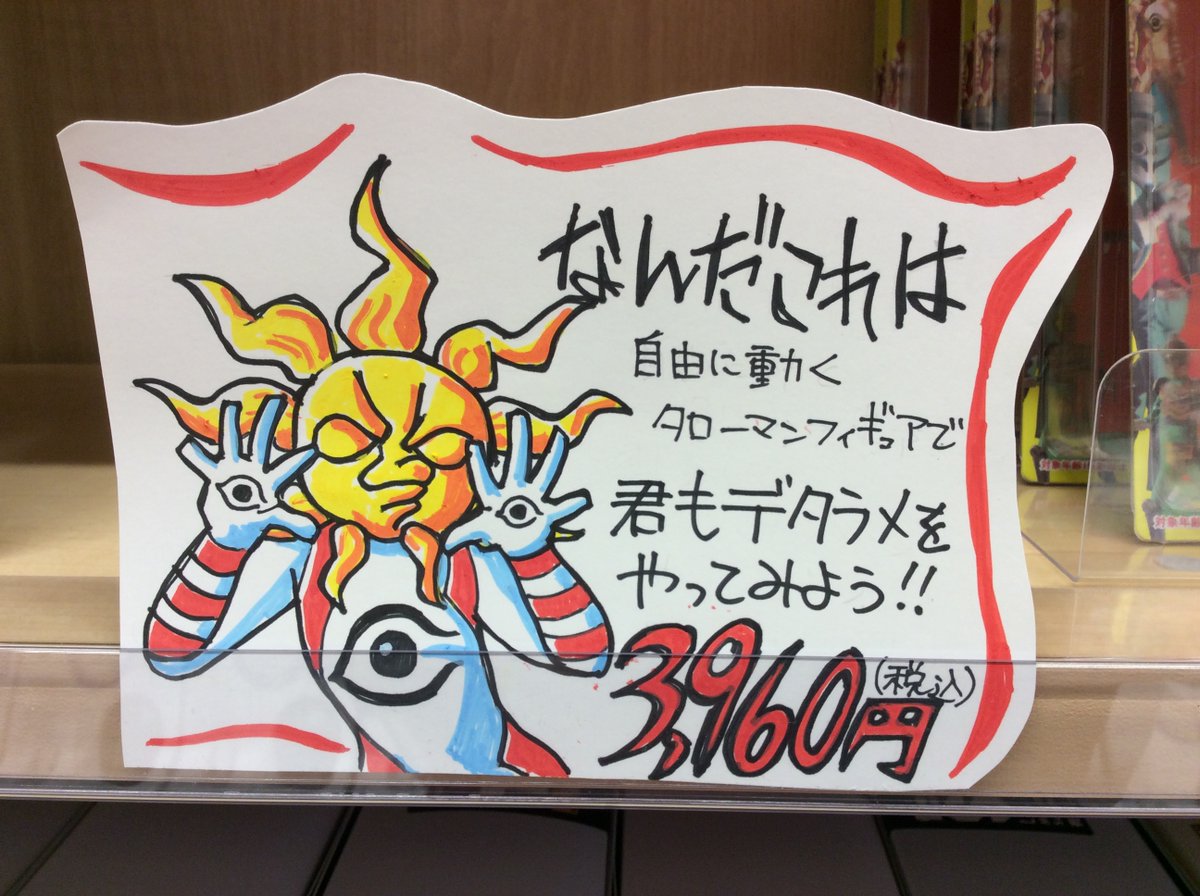 なんだこれは
自由に動く
タローマンフィギュアで
君もデタラメを
やってみよう!!
3,960円(税込)
対象年齢
対象年齢